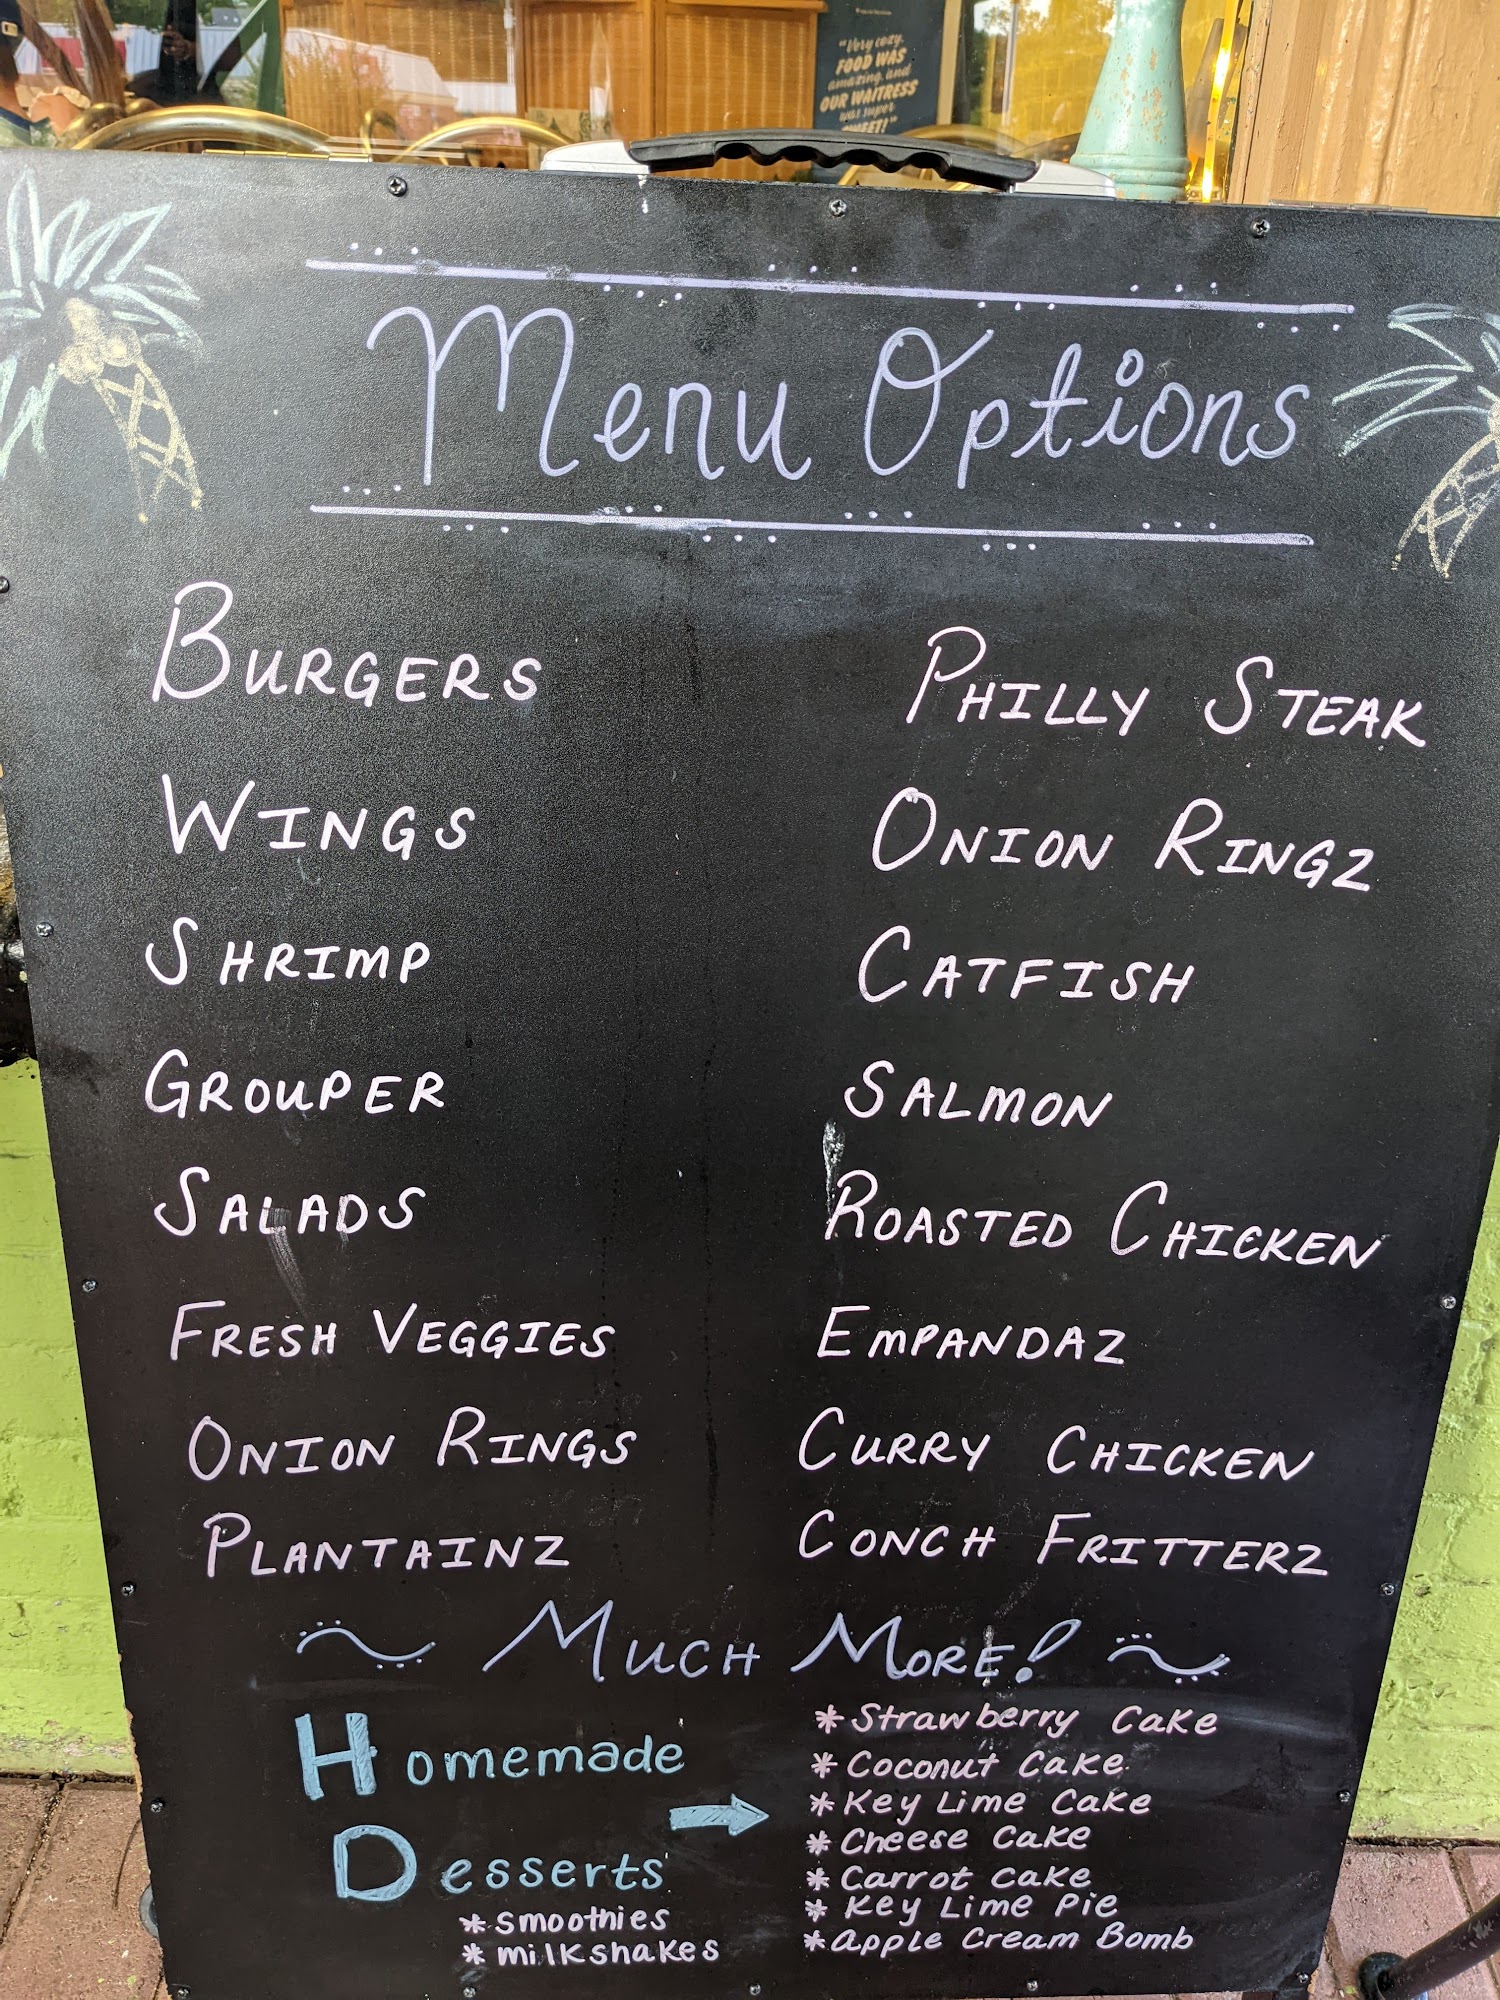 "Very cozy.
FOOD WAS
amazing, and
OUR WAITRESS
was super
SWEET!"
Menu Options
BURGERS
WINGS
SHRIMP
GROUPER
SALADS
FRESH VEGGIES
ONION RINGS
PLANTAINZ
PHILLY STEAK
ONION RINGZ
CATFISH
SALMON
ROASTED CHICKEN
EMPANDAZ
CURRY CHICKEN
CONCH FRITTERZ
~ MUCH MORE! ~
Homemade
Desserts
* Smoothies
* milkshakes
* Strawberry Cake
* Coconut Cake
* Key Lime Cake
* Cheese Cake
* Carrot Cake
* Key Lime Pie
* Apple Cream Bomb